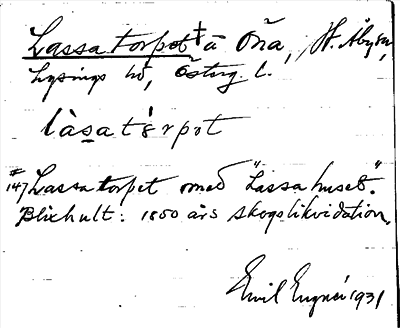 Lassatorpet ‡ å Öna, St. Åby sn,
Lysings hd, Österg. l.
làsat&rpot
‡147 Lassatorpet med "Lassahuset".
Blixhult: 1850 års skogslikvidation.
Emil Engnér 1931